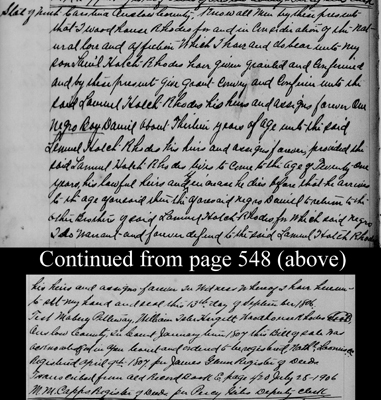 State of North Carolina Onslow County, Know all Men by these presents
that I Woodhouse Rhodes for and in Consideration of the Nat-
ural love and affection Which I have and do bear unto my
son Samuel Hatch Rhodes have given granted and Confirmed
and by these present Give Grant Convey and Confirm unto the
said Samuel Hatch Rhodes his heirs and assigns forever One
Negro Boy Daniel about Thirteen years of age unto the said
Samuel Hatch Rhodes his heirs and assigns forever, provided the
said Samuel Hatch Rhodes lives to come to the age of Twenty-one
years, his lawful heirs and in case he dies before that he arrives
to the age of said then the aforesaid Negro Daniel to return to the
other Brothers of said Samuel Hatch Rhodes for Which said Negro
I do Warrant and forever defend to the said Samuel Hatch Rhodes
Continued from page 548 (above)
his heirs and assigns forever In Witness Whereof I have hereun-
to set my hand and seal this 13th day of September 1806
Test William Woodhouse Rhodes Seal
Onslow County, In Court January term 1807 this Bill of sale was
acknowledged in open Court and ordered to be registered
Registered April 9th 1807 for James Register of Deeds
Transcribed from old Record Book page 120 July 25-1906
M.M. Capps Register of Deeds Per Deputy clerk